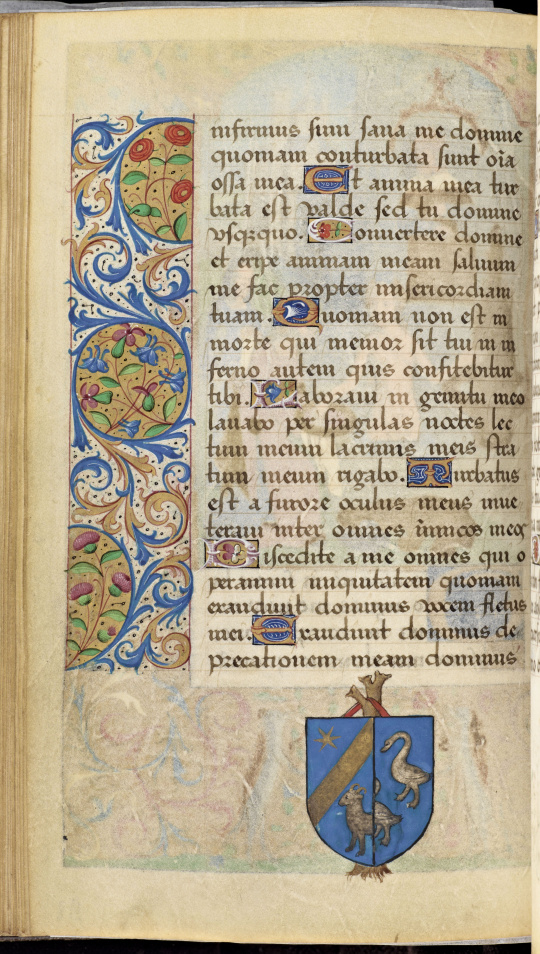 infirmus sum sana me domine
quoniam conturbata sunt oīa
ossa mea. Et anima mea tur
bata est valde sed tu domine
vsqzquo. Conuertere domine
et eripe animam meam saluum
me fac propter misericordiam
tuam. Quoniam non est in
morte qui memor sit tui in in
ferno autem quis confitebitur
tibi. Laboraui in gemitu meo
lauabo per singulas noctes lec
tum meum lacrimis meis stra
tum meum rigabo. Turbatus
est a furore oculus meus inue
teraui inter omnes inimicos meos
Discedite a me omnes qui o
peramini iniquitatem quoniam
exaudiuit dominus vocem fletus
mei. Exaudiuit dominus de
precationem meam dominus